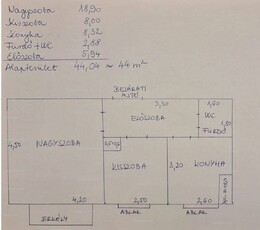 Nagyszoba 18,90
Kisszoba 8,00
Konyha 8,32
Fürdő+WC 2,88
Előszoba 5,94
Alapterület 44,04 ≈ 44 m²
BEJÁRATI
AJTÓ
3,30
1,60
ELŐSZOBA
WC
1,80
FÜRDŐ
4,50
NAGYSZOBA
KISSZOBA
3,20
KONYHA
4,20
2,50
2,60
ERKÉLY
ABLAK
ABLAK